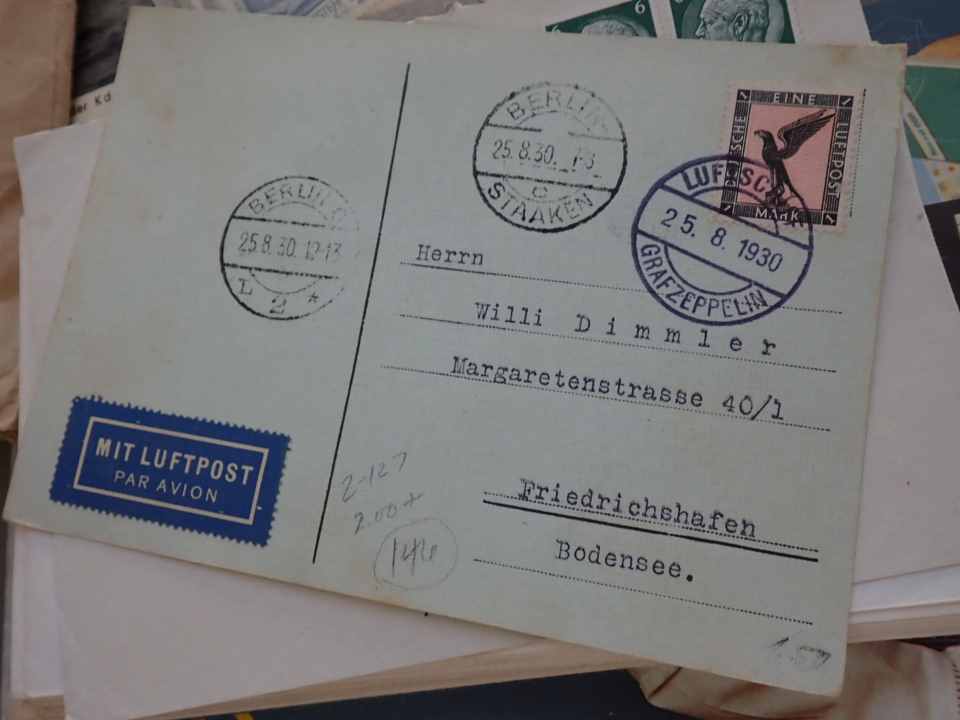 6
er Kd
BERLIN
25.8.30. 1-3
C
STAAKEN
EINE
LUFTPOST
MARK
LUFTSCHIFF
25.8.1930
GRAFZEPPELIN
BERLIN C
25.8.30. 12-13
L 2 *
Herrn
Willi Dimmler
Margaretenstrasse 40/1
Friedrichshafen
Bodensee.
MIT LUFTPOST
PAR AVION
2-127
200+